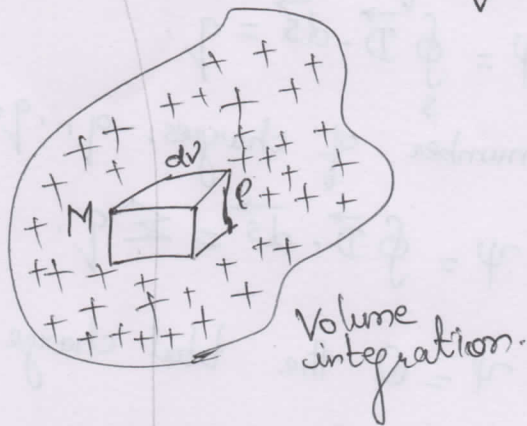 V
dv
ρ
M
Volume
integration.